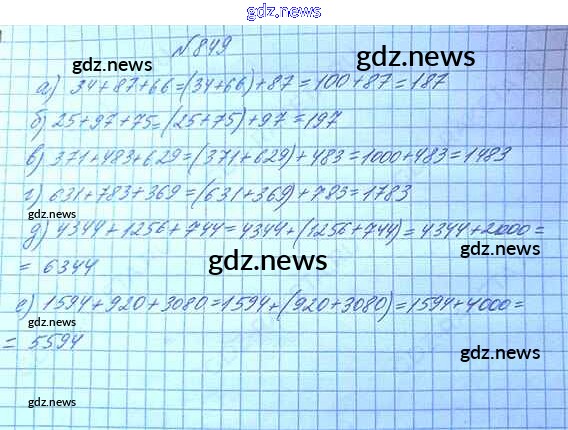 gdz.news
№849
gdz.news gdz.news
а) 34+87+66=(34+66)+87=100+87=187
б) 25+97+75=(25+75)+97=197
в) 371+483+629=(371+629)+483=1000+483=1483
г) 631+783+369=(631+369)+783=1783
gdz.news
д) 4344+1256+744=4344+(1256+744)=4344+2000=
gdz.news
= 6344
gdz.news
е) 1594+920+3080=1594+(920+3080)=1594+4000=
gdz.news
= 5594
gdz.news
gdz.news